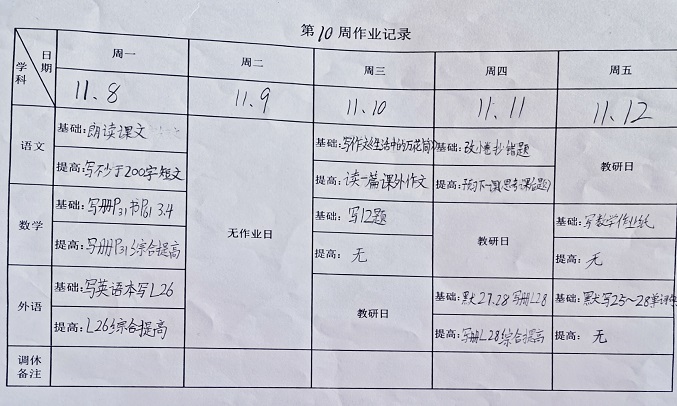 第10周作业记录
日期
学科
周一 周二 周三 周四 周五
11.8 11.9 11.10 11.11 11.12
语文
基础:朗读课文
提高:写不少于200字短文
无作业日
基础:写作文《生活中的万花筒》
提高:读一篇课外作文
基础:改小卷抄错题
提高:预习下一课(思考课后题)
教研日
数学
基础:写册P31书P61 3.4
提高:写册P31综合提高
基础:写12题
提高:无
教研日
基础:写数学作业纸
提高:无
外语
基础:写英语本写L26
提高:L26综合提高
教研日
基础:默27.28写册L28
提高:写册L28综合提高
基础:默写25~28单词
提高:无
调休
备注